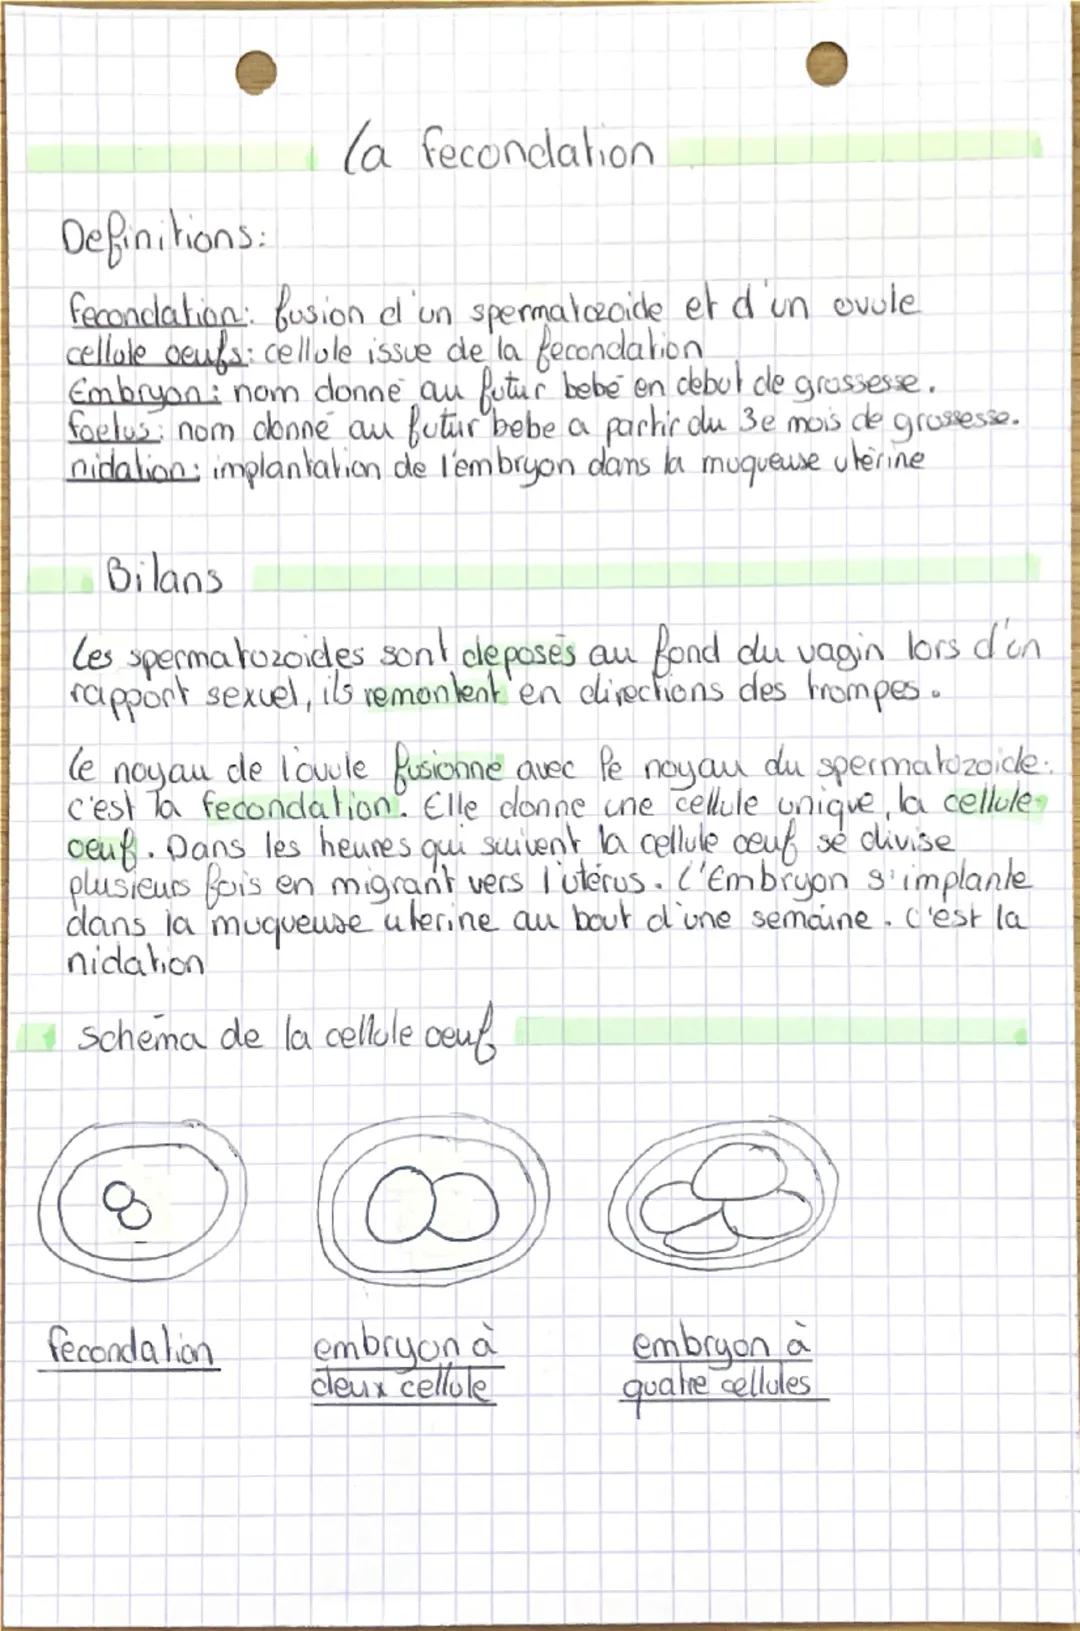 la fecondation
Definitions:
fecondation: fusion d'un spermatozoide et d'un ovule
cellule oeufs: cellule issue de la fecondation
Embryon: nom donné au futur bebé en debut de grossesse.
foetus: nom donné au futur bebe a partir du 3e mois de grossesse.
nidation: implantation de l'embryon dans la muqueuse utérine
Bilans
Les spermatozoides sont deposés au fond du vagin lors d'un
rapport sexuel, ils remontent en directions des trompes.
Le noyau de l'ovule fusionne avec le noyau du spermatozoide:
c'est la fecondation. Elle donne une cellule unique, la cellule
oeuf. Dans les heures qui suivent la cellule oeuf se divise
plusieurs fois en migrant vers l'utérus. L'Embryon s'implante
dans la muqueuse uterine au bout d'une semaine. C'est la
nidation
schéma de la cellule oeuf
fecondation
embryon à
deux cellule
embryon à
quatre cellules